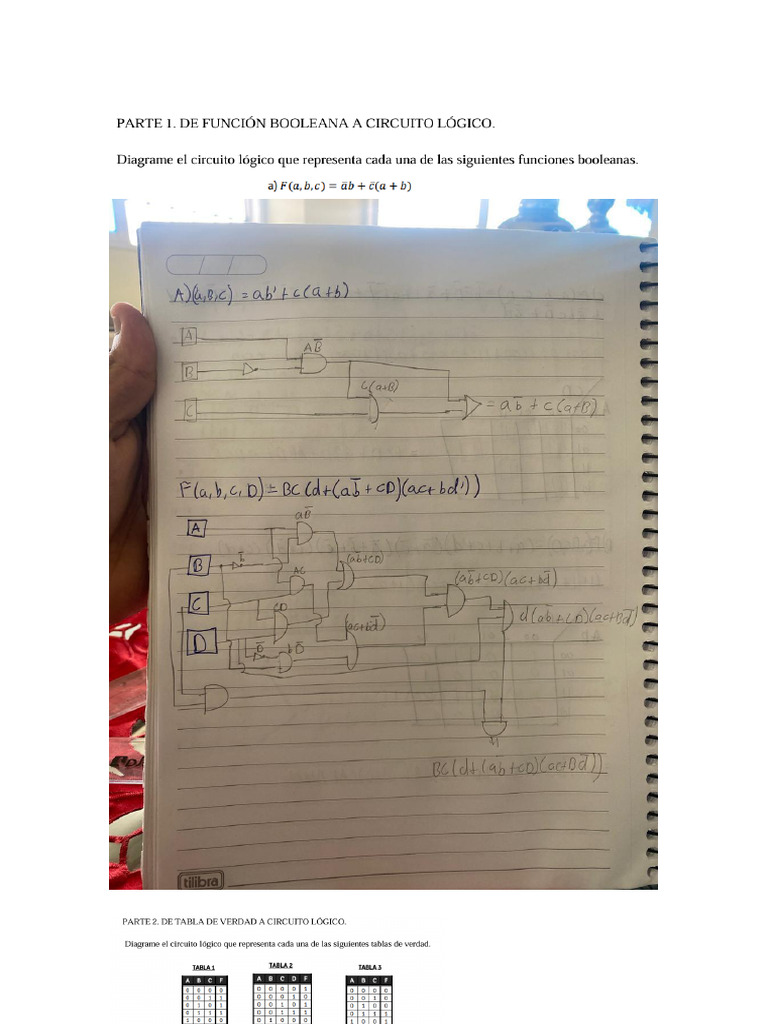 PARTE 1. DE FUNCIÓN BOOLEANA A CIRCUITO LÓGICO.
Diagrame el circuito lógico que representa cada una de las siguientes funciones booleanas.
a) F(a, b, c) = a̅b + c̅(a + b)
A)(a,B,c) = ab' + c(a+b)
A
AB̅
B
c(a+B)
C
= ab̅ + c(a+B)
F(a,b,c,D) = BC(d+(ab̅+cD)(ac+bd'))
A
aB̅
B
b̅
(ab̅+CD)
AC
(ab̅+CD)(ac+bd̅)
C
CD
(ac+bd̅)
d(ab+CD)(ac+Bd̅)
D
D̅
bD̅
BC(d+(ab̅+cD)(ac+Dd̅))
tilibra
PARTE 2. DE TABLA DE VERDAD A CIRCUITO LÓGICO.
Diagrame el circuito lógico que representa cada una de las siguientes tablas de verdad.
TABLA 1 TABLA 2 TABLA 3
A B C F A B C D F A B C F
0 0 0 0 0 0 0 0 1 0 0 0 0
0 0 1 1 0 0 0 1 0 0 0 1 0
0 1 0 1 0 0 1 0 1 0 1 0 0
0 1 1 1 0 0 1 1 1 0 1 1 1
1 0 0 0 0 1 0 0 0 1 0 0 1